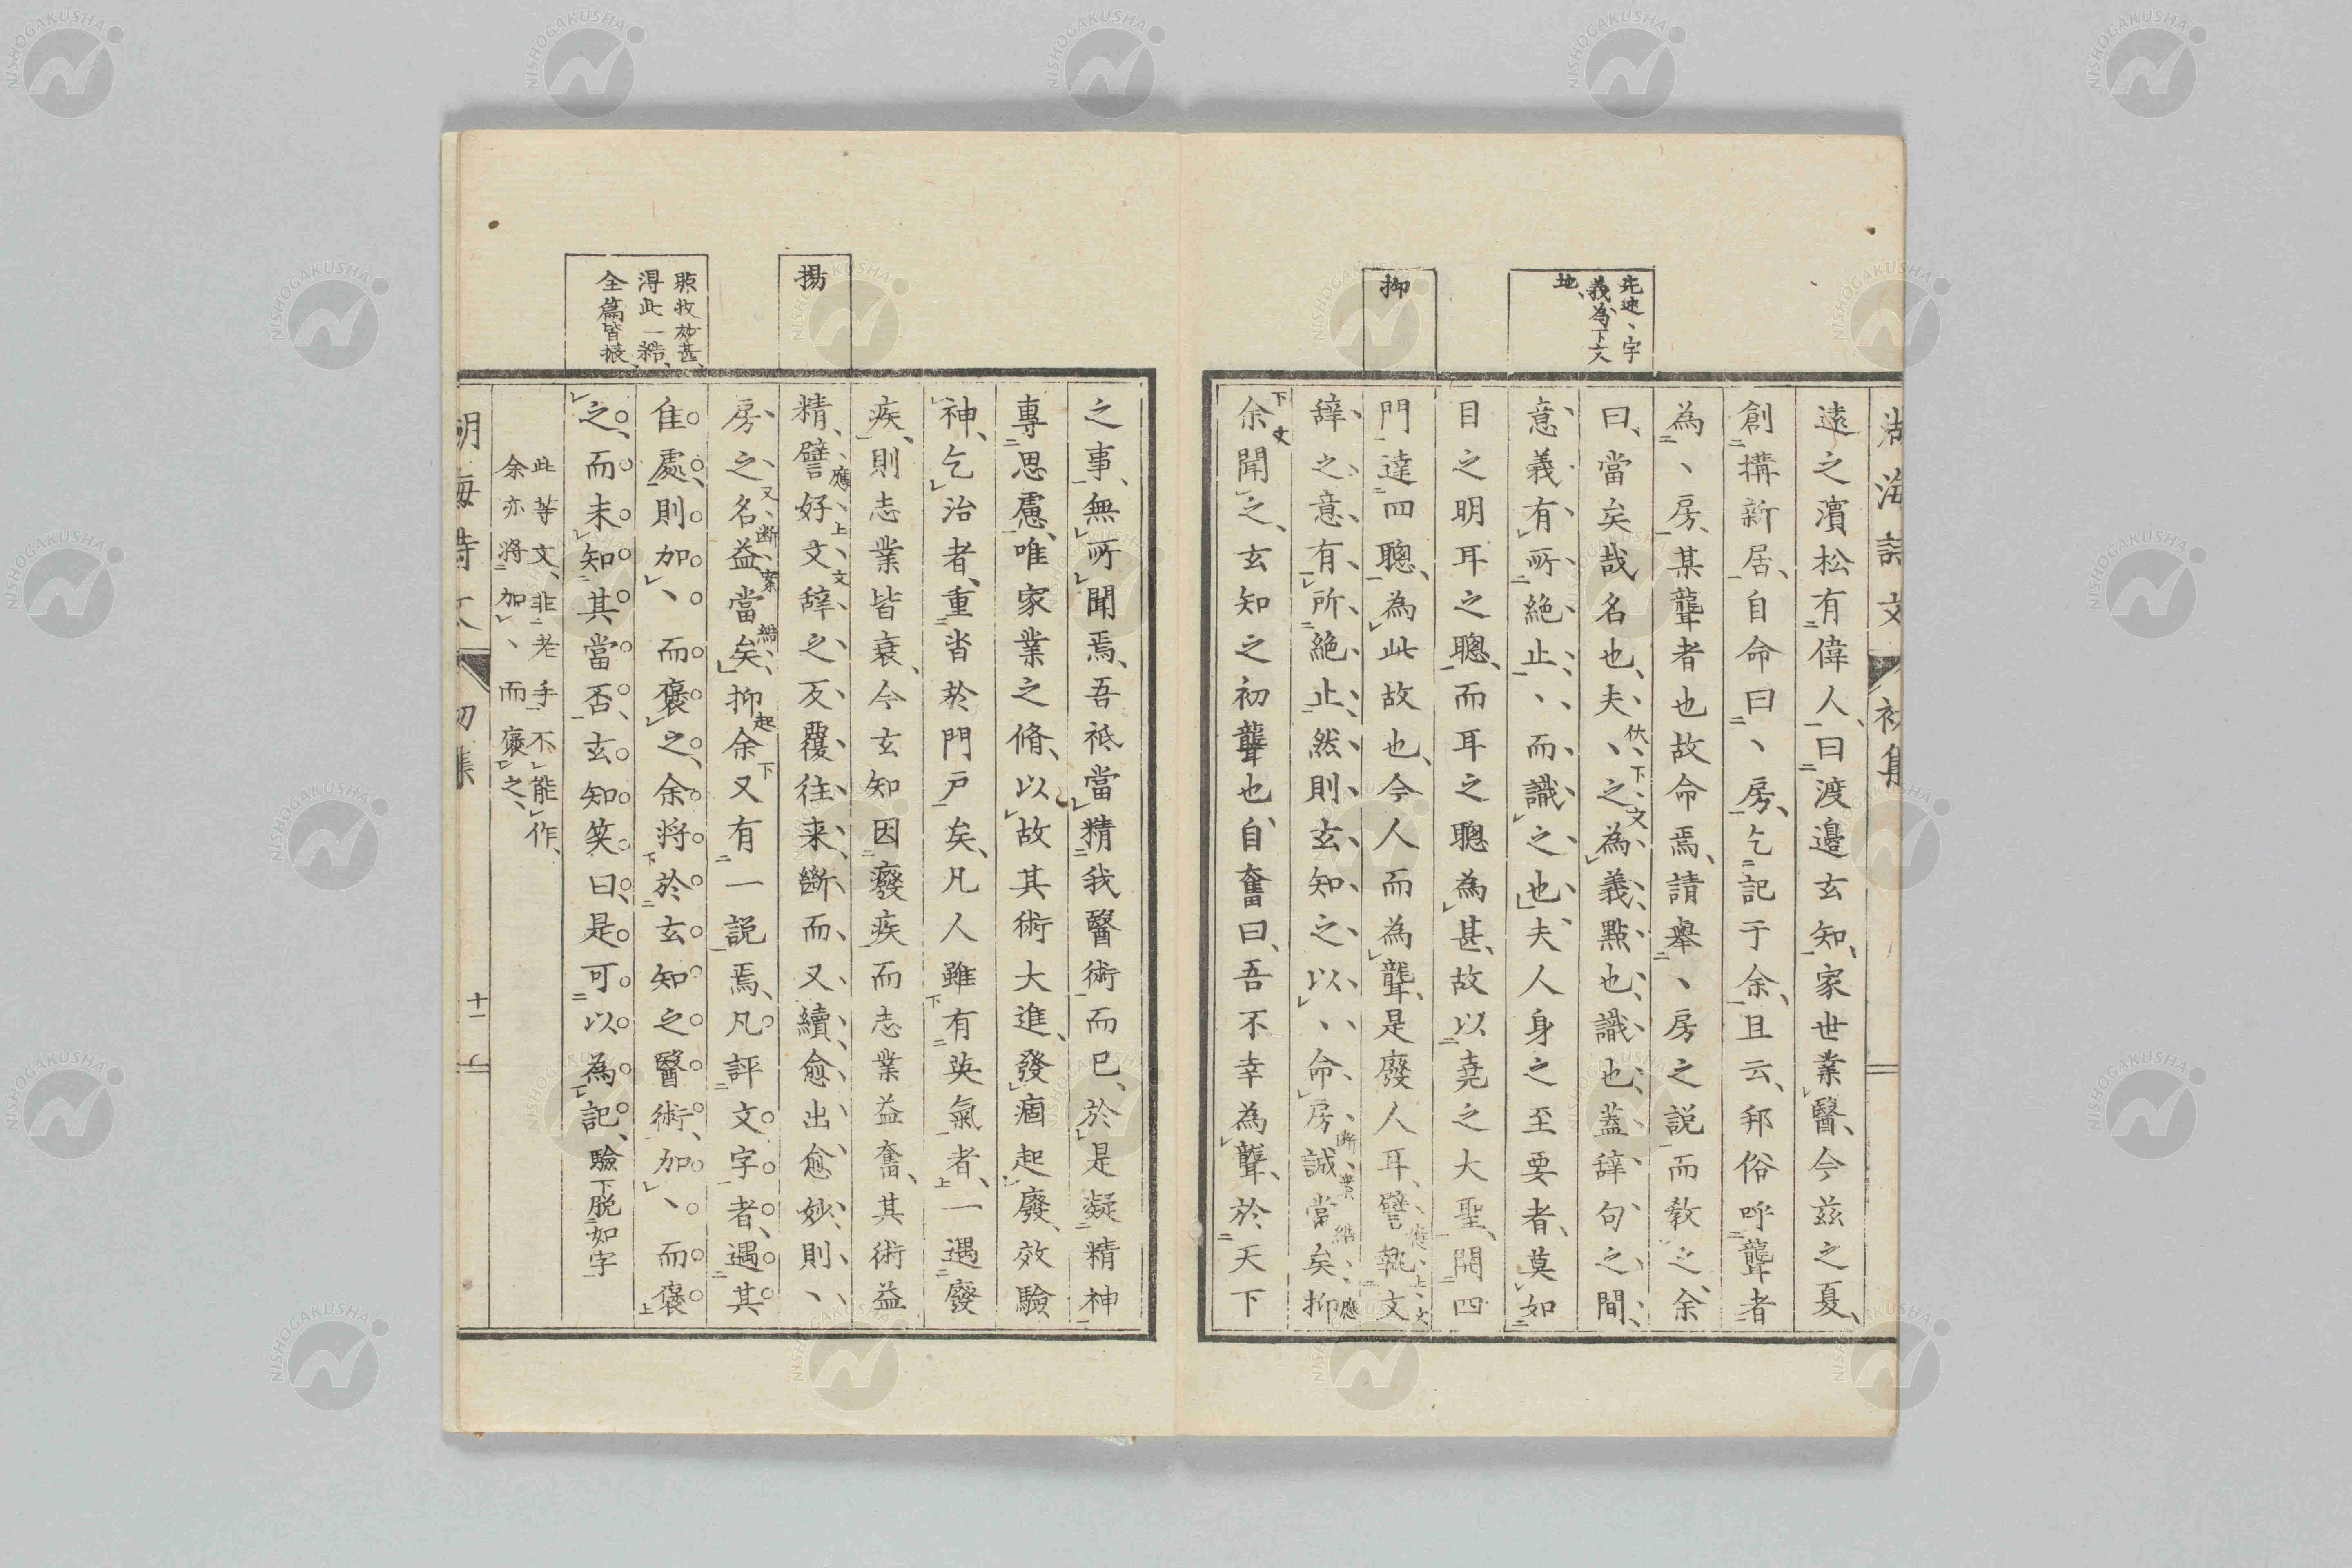 湖海詩文 初集
遠之濱松有偉人、曰渡邉玄知、家世業醫、今茲之夏、
創搆新居、自命曰、丶房、乞記于余、且云、邦俗呼聾者
為丶房、某聾者也故命焉、請舉丶房之説而教之、余
曰、當矣哉名也、夫丶之為義點也、識也、蓋辞句之間、
意義有所絶止、丶而識之也、夫人身之至要者、莫如
目之明耳之聰、而耳之聰為甚、故以堯之大聖、開四
門達四聰、為此故也、今人而為聾、是廢人耳、譬執文
辞之意有所絶止、然則玄知之以丶命房誠當矣、抑
余聞之、玄知之初聾也、自奮曰、吾不幸為聾、於天下
先述丶字
義為下文
地、
抑
伏下文
應上文
断案
結
應
下文
之事、無所聞焉、吾祇當精我醫術而已、於是凝精神
專思慮、唯家業之脩、以故其術大進、發痼起廢、效驗
神、乞治者、重沓於門戸矣、凡人雖有英氣者、一遇廢
疾、則志業皆衰、今玄知因癈疾而志業益奮、其術益
精、譬好文辞之反覆往来、斷而又續、愈出愈妙、則丶
房之名益當矣、抑余又有一説焉、凡評文字者、遇其
佳處、則加丶而褒之、余将於玄知之醫術、加丶而褒
之、而未知其當否、玄知笑曰、是可以為記、驗下脱如字
此等文、非老手不能作、
余亦将加丶而褒之、
揚
照收妙甚、
得此一結、
全篇皆振、
應上文
又断案
結
起下
湖海詩文 初集 十一
NISHOGAKUSHA